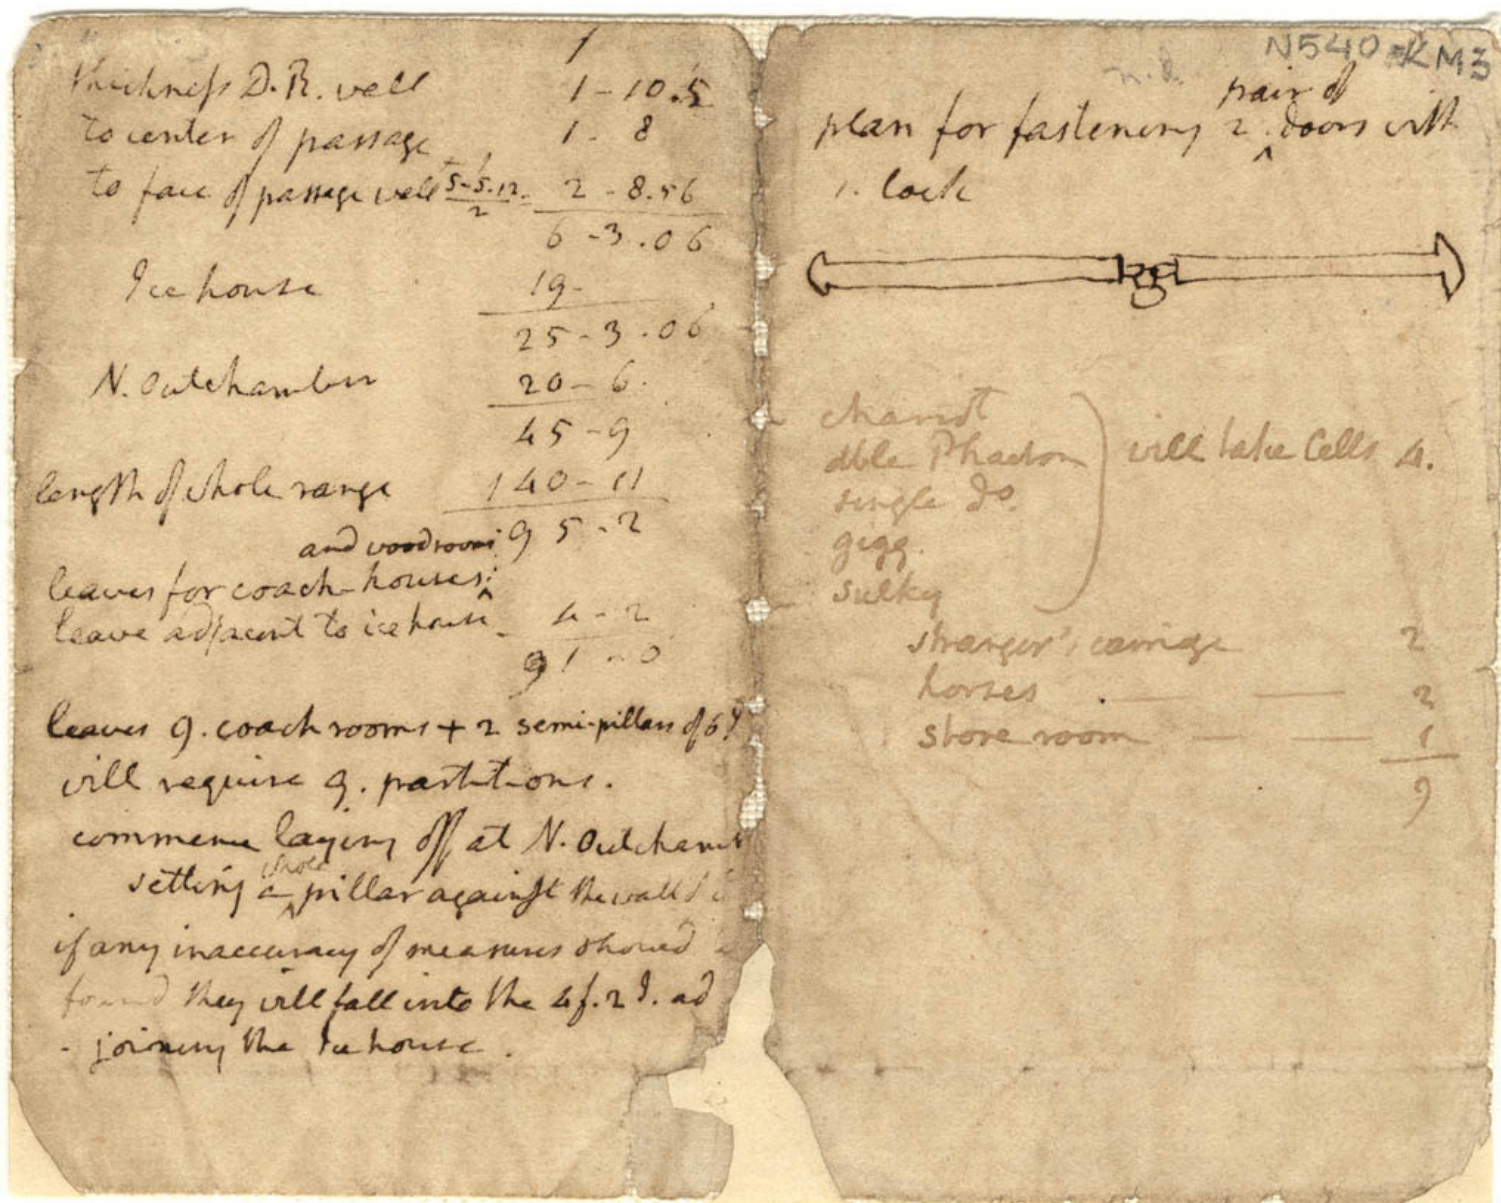 thickness D.R. wall 1-10.5
to center of passage 1-8
to face of passage wall 5-5.12 / 2 = 2-8.56
6-3.06
Ice house 19-
25-3.06
N. Outchamber 20-6.
45-9
length of whole range 140-11
95-2
and woodroom
leaves for coach-houses:
leave adjacent to icehouse - 4-2
91-0
leaves 9. coach rooms + 2 semi-pillars of 6 I
will require 9. partitions.
commence laying off at N. Outchamb
setting a whole pillar against the wall
if any inaccuracy of measures should
found they will fall into the 4 f. 2 I. ad
- joining the Ice house.
N540 KM3
n.d.
pair of
plan for fastening 2 ^ doors with
1. lock
chariot
dble Phaeton
single do.
gigg.
sulky
will take Cells 4.
stranger's carriage 2
horses . — — 2
store room — — 1
9